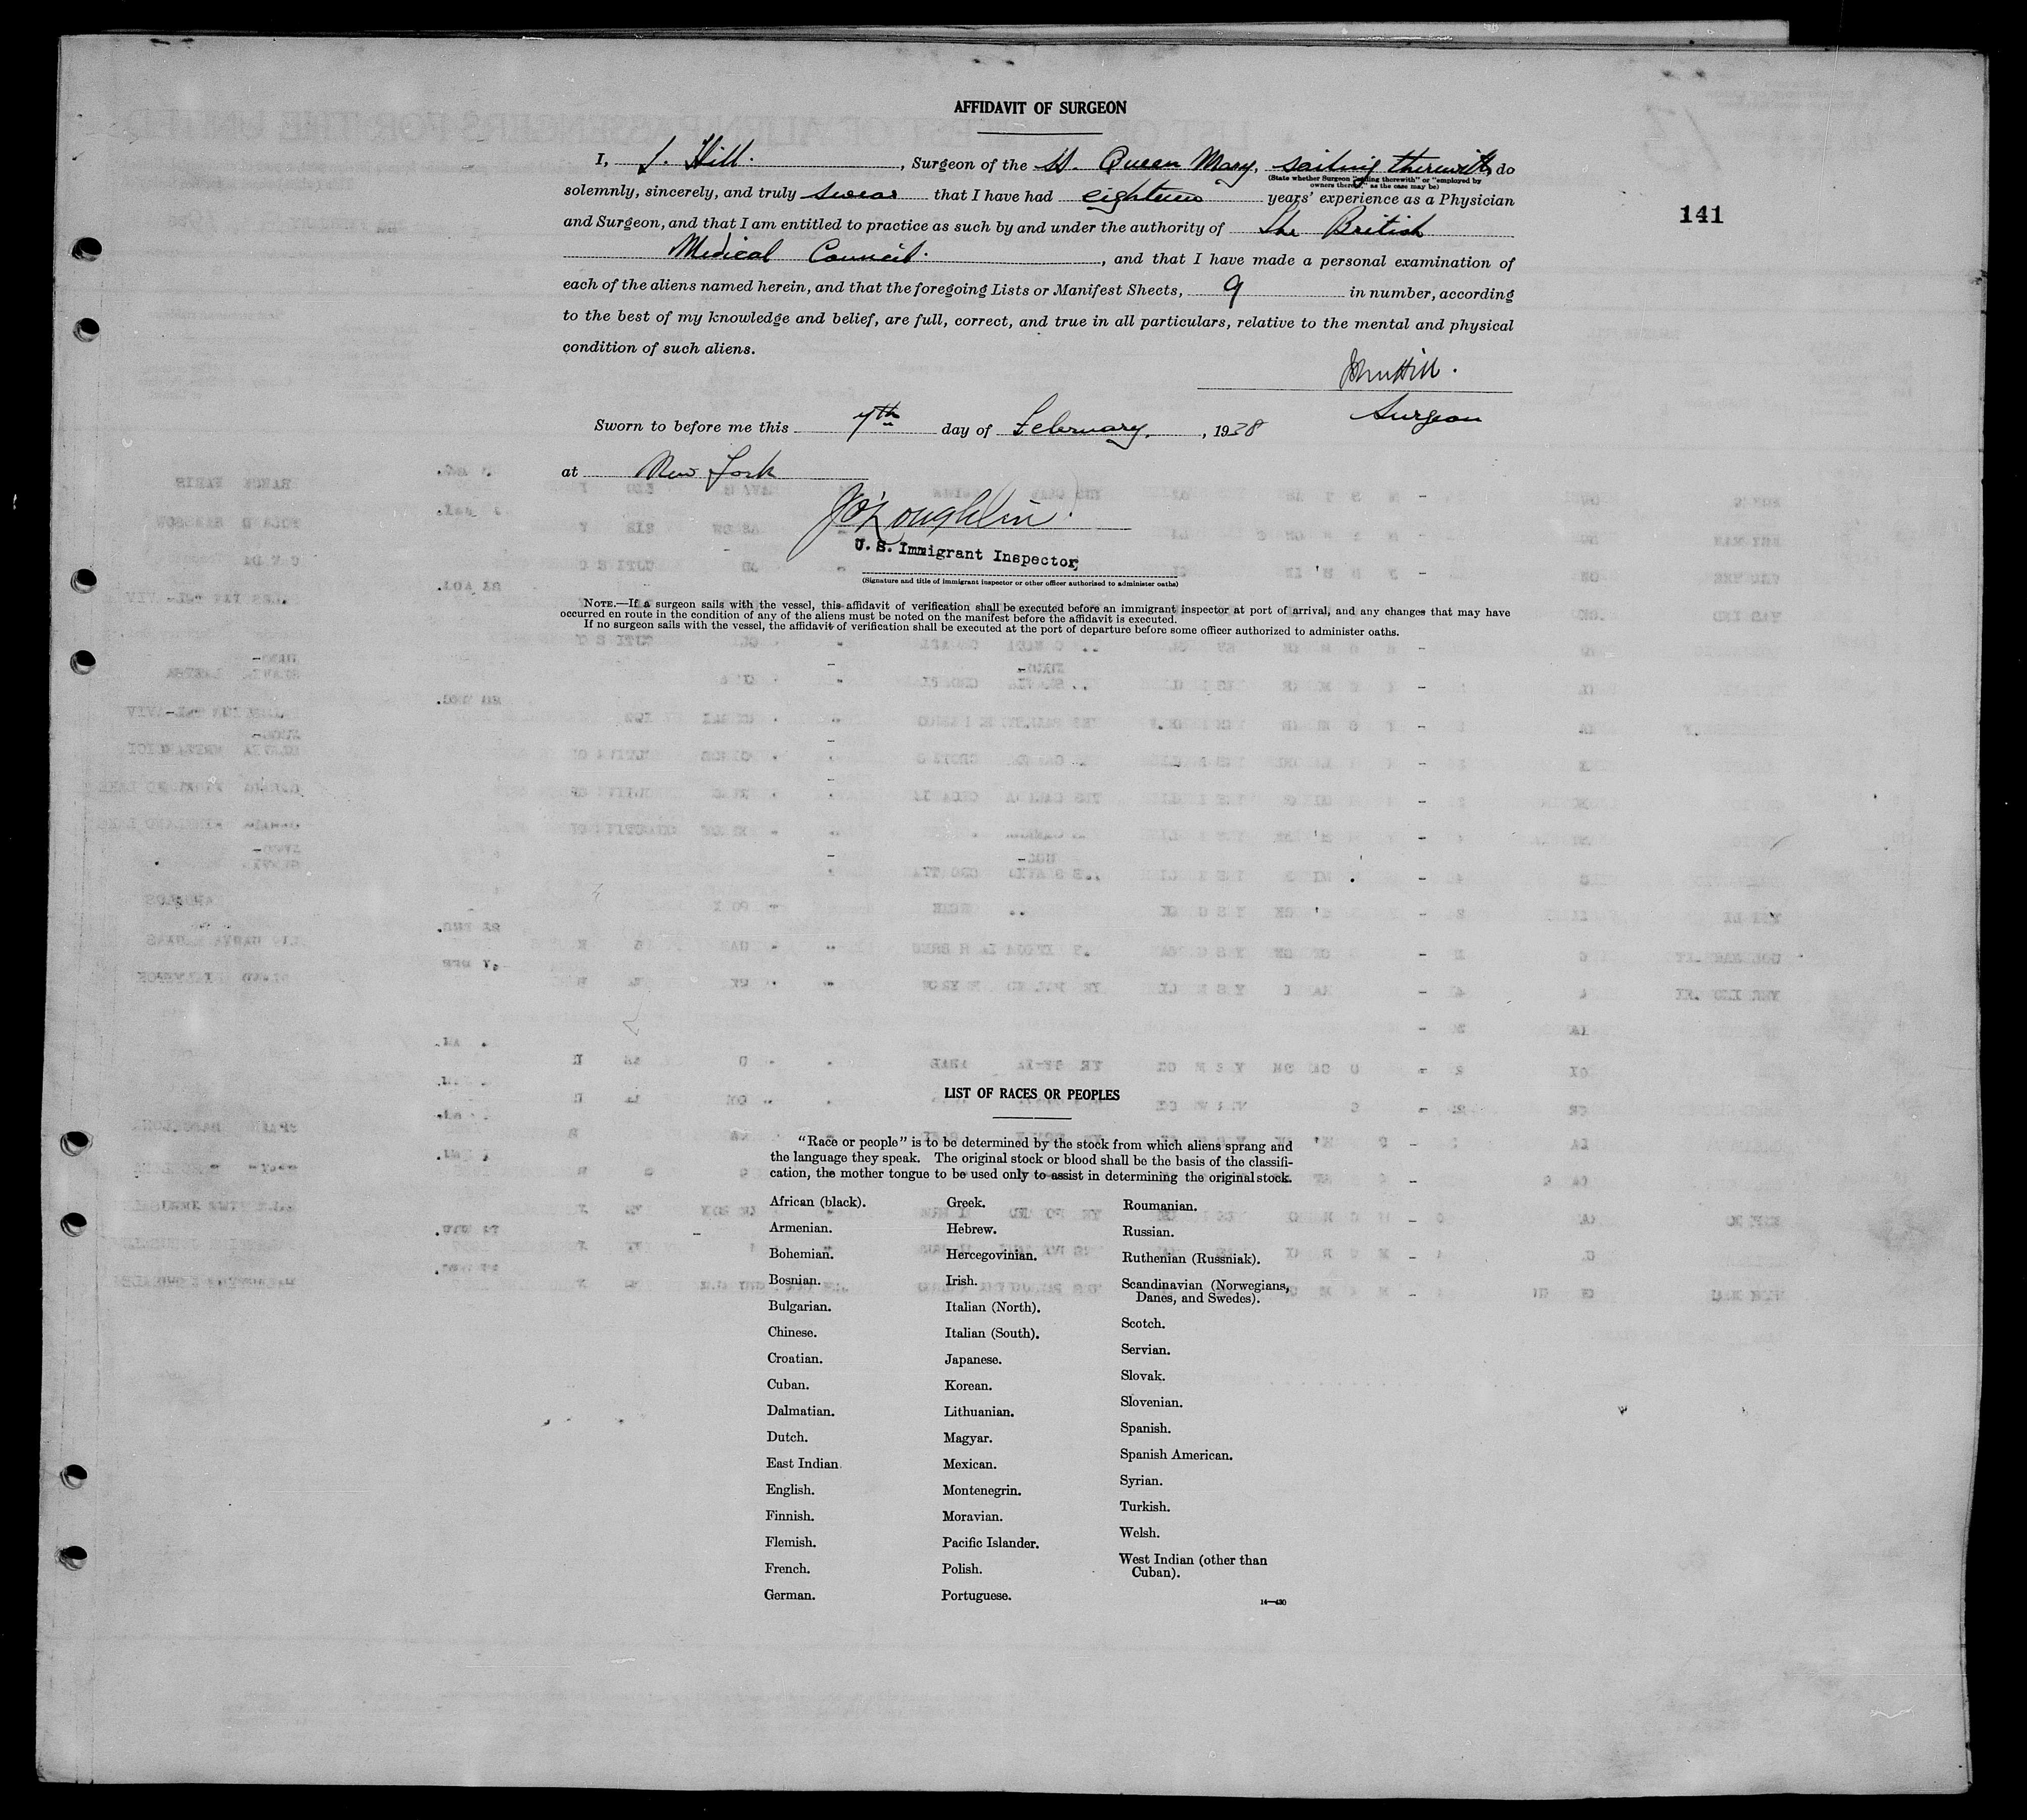 AFFIDAVIT OF SURGEON
I, J. Hill. , Surgeon of the SS. Queen Mary, sailing therewith, do
(State whether Surgeon "sailing therewith" or "employed by
owners thereof," as the case may be)
solemnly, sincerely, and truly swear that I have had eighteen years' experience as a Physician
and Surgeon, and that I am entitled to practice as such by and under the authority of The British
141
Medical Council. , and that I have made a personal examination of
each of the aliens named herein, and that the foregoing Lists or Manifest Sheets, 9 in number, according
to the best of my knowledge and belief, are full, correct, and true in all particulars, relative to the mental and physical
condition of such aliens.
John Hill.
Surgeon
Sworn to before me this 7th day of February, , 1938
at New York
J O'Loughlin
U. S. Immigrant Inspector
(Signature and title of immigrant inspector or other officer authorized to administer oaths)
NOTE.—If a surgeon sails with the vessel, this affidavit of verification shall be executed before an immigrant inspector at port of arrival, and any changes that may have
occurred en route in the condition of any of the aliens must be noted on the manifest before the affidavit is executed.
If no surgeon sails with the vessel, the affidavit of verification shall be executed at the port of departure before some officer authorized to administer oaths.
LIST OF RACES OR PEOPLES
"Race or people" is to be determined by the stock from which aliens sprang and
the language they speak. The original stock or blood shall be the basis of the classifi-
cation, the mother tongue to be used only to assist in determining the original stock.
African (black).
Armenian.
Bohemian.
Bosnian.
Bulgarian.
Chinese.
Croatian.
Cuban.
Dalmatian.
Dutch.
East Indian.
English.
Finnish.
Flemish.
French.
German.
Greek.
Hebrew.
Hercegovinian.
Irish.
Italian (North).
Italian (South).
Japanese.
Korean.
Lithuanian.
Magyar.
Mexican.
Montenegrin.
Moravian.
Pacific Islander.
Polish.
Portuguese.
Roumanian.
Russian.
Ruthenian (Russniak).
Scandinavian (Norwegians,
Danes, and Swedes).
Scotch.
Servian.
Slovak.
Slovenian.
Spanish.
Spanish American.
Syrian.
Turkish.
Welsh.
West Indian (other than
Cuban).
14—430